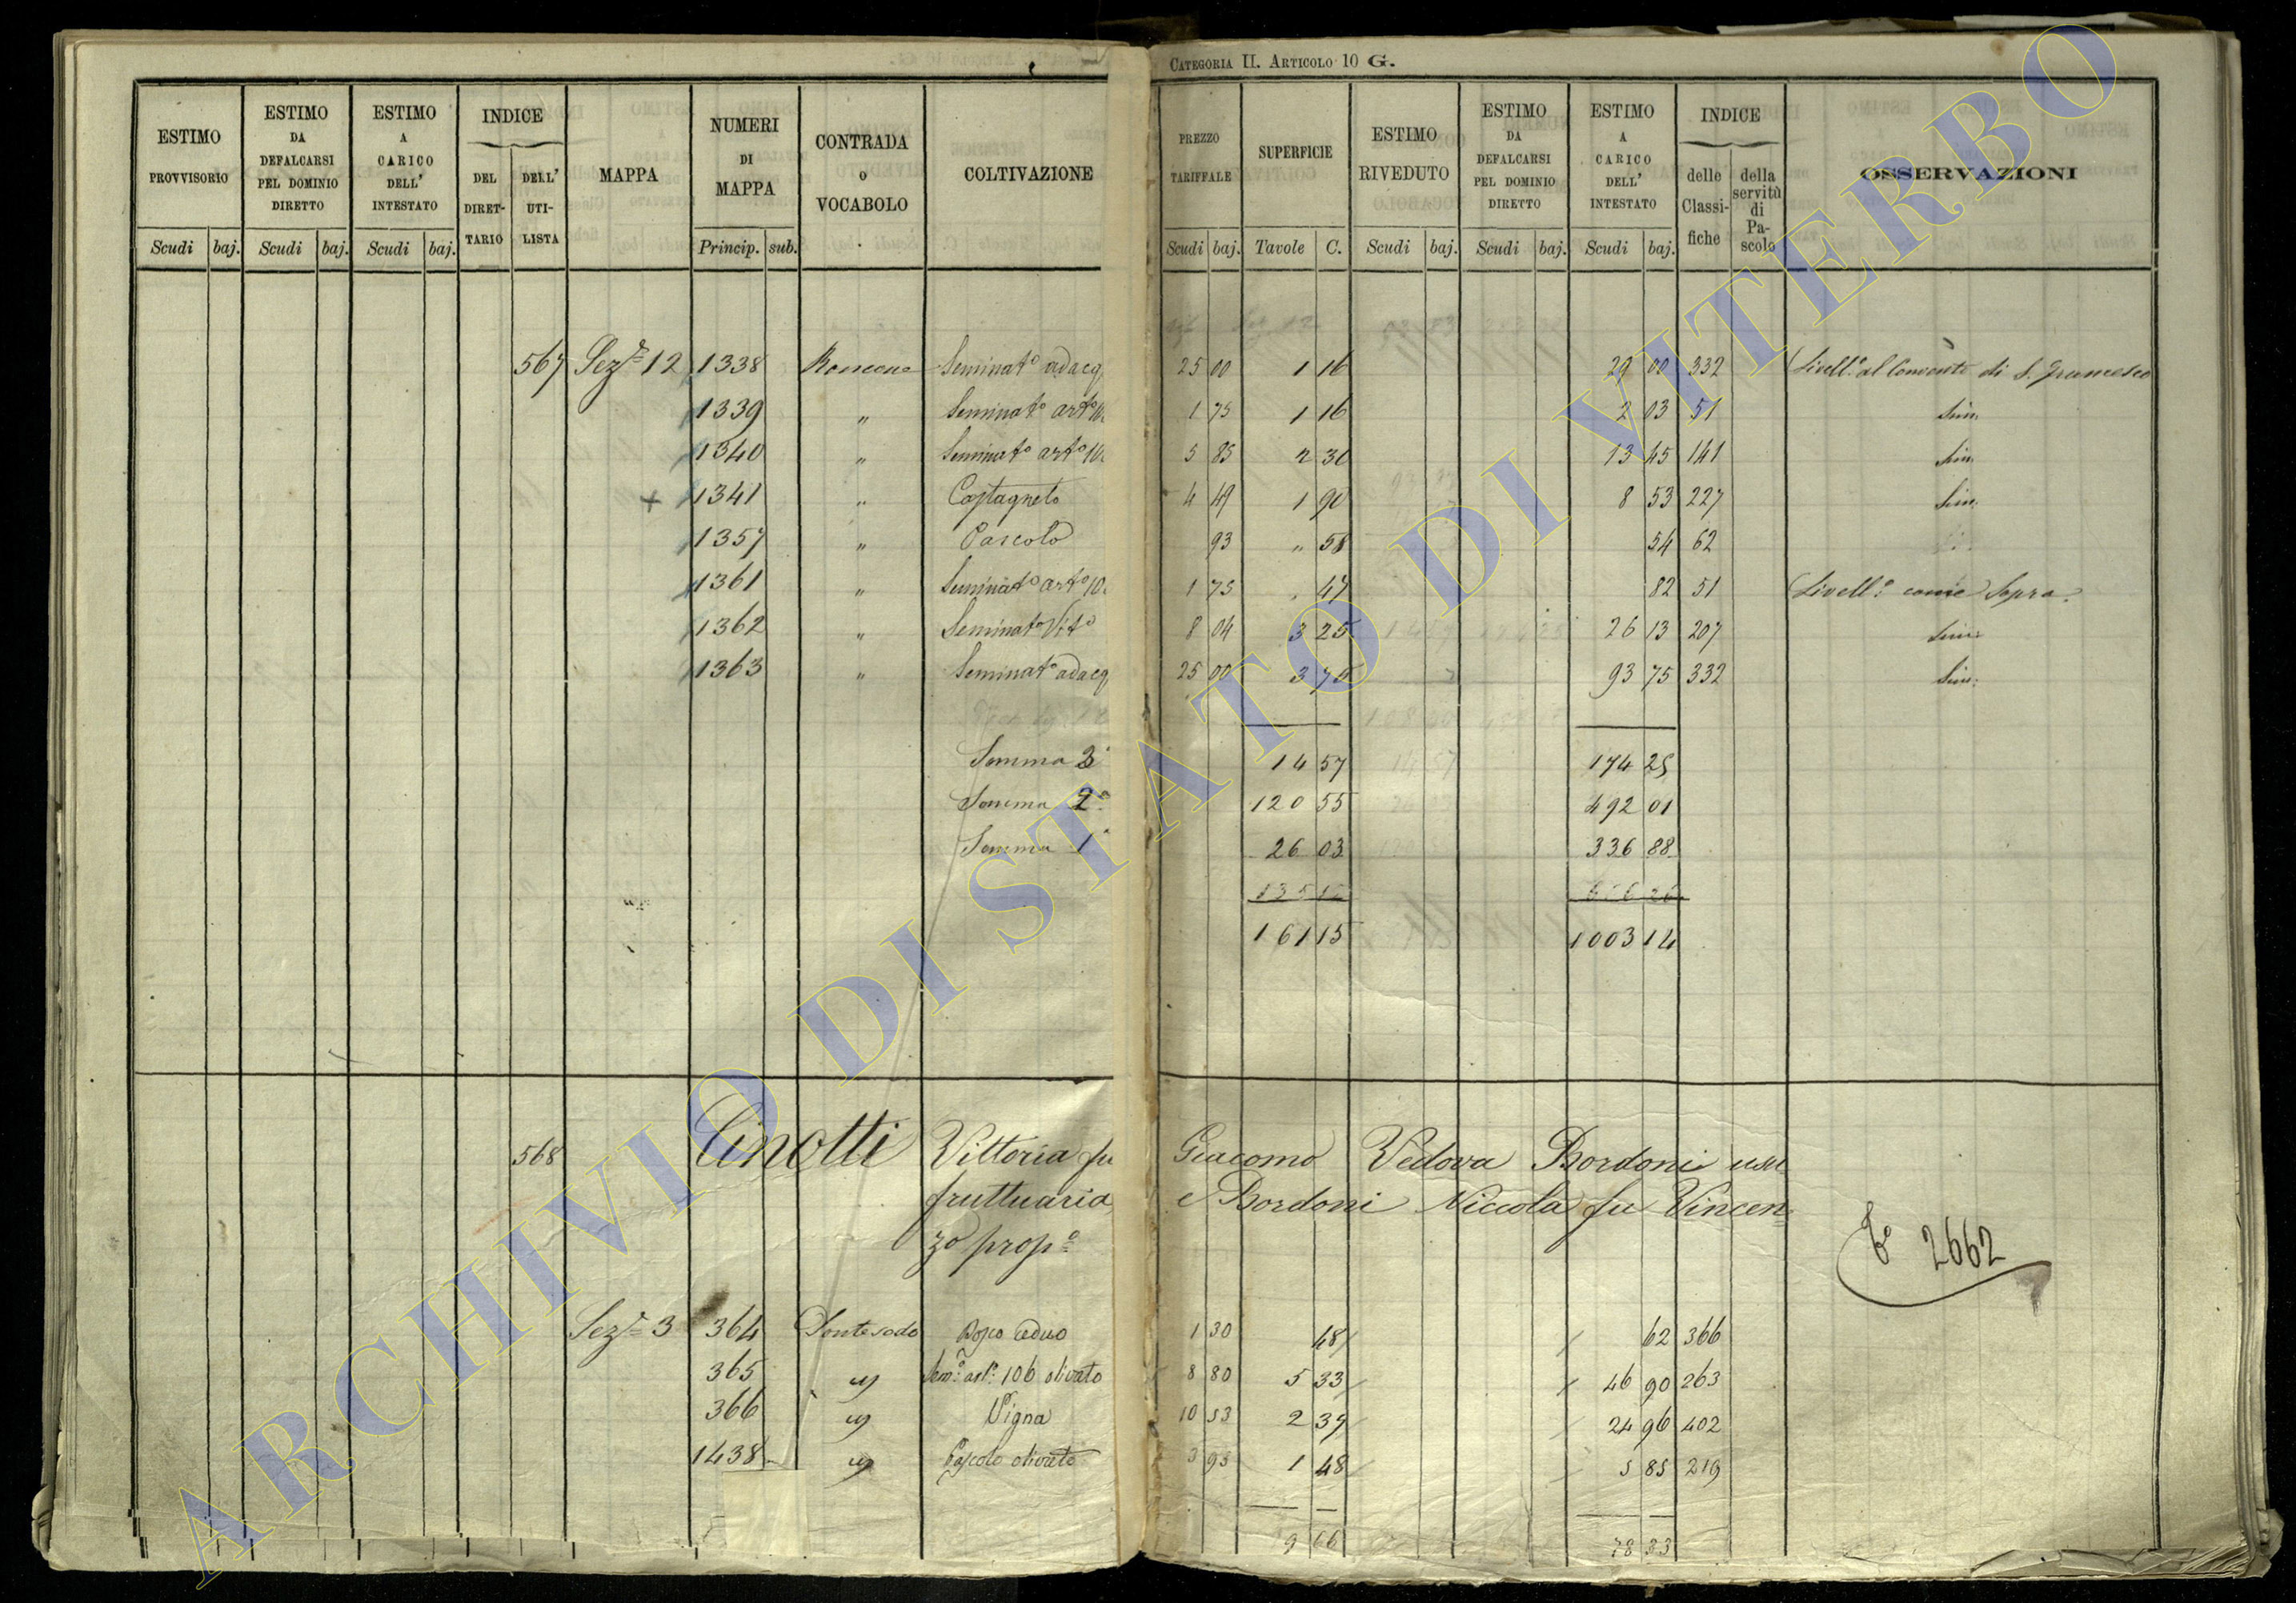 CATEGORIA II. ARTICOLO 10 G.
ESTIMO PROVVISORIO Scudi baj.
ESTIMO DA DEFALCARSI PEL DOMINIO DIRETTO Scudi baj.
ESTIMO A CARICO DELL' INTESTATO Scudi baj.
INDICE DEL DIRET-TARIO DELL' UTI-LISTA
MAPPA
NUMERI DI MAPPA Princip. sub.
CONTRADA o VOCABOLO
COLTIVAZIONE
PREZZO TARIFFALE Scudi baj.
SUPERFICIE Tavole C.
ESTIMO RIVEDUTO Scudi baj.
ESTIMO DA DEFALCARSI PEL DOMINIO DIRETTO Scudi baj.
ESTIMO A CARICO DELL' INTESTATO Scudi baj.
INDICE delle Classi-fiche della servitù di Pa-scolo
OSSERVAZIONI
567 Sez.e 12 1338 Seminat.o adacq 25 00 1 16 29 00 332 Livell.o al Convento di S. Francesco
1339 " Seminat.o art.o 1 75 1 16 2 03 51 Sim.
1340 " Seminat.o art.o 5 85 2 30 13 45 141 Sim.
1341 " Castagneto 4 49 1 90 8 53 227 Sim.
1357 " Pascolo 93 " 58 54 62
1361 " Seminat.o art.o 1 75 47 82 51 Livell.o come sopra
1362 " Seminat.o Vit.o 8 04 3 25 26 13 207 Sim.
1363 " Seminat.o adacq 25 00 3 75 93 75 332 Sim.
Somma 3a 14 57 174 25
Somma 2a 120 55 492 01
Somma 1a 26 03 336 88
135 12 666 26
161 15 1003 14
568 Cinotti Vittoria fu Giacomo Vedova Bordoni usu
fruttuaria e Bordoni Niccola fu Vincen
zo prop.o
2662
Sez.e 3 364 Bosco ceduo 1 30 48 62 366
365 Sem.o art.o 106 olivato 8 80 5 33 46 90 263
366 Vigna 10 53 2 39 24 96 402
1438 Pascolo olivato 3 95 1 48 5 85 219
9 66 78 33
ARCHIVIO DI STATO DI VITERBO